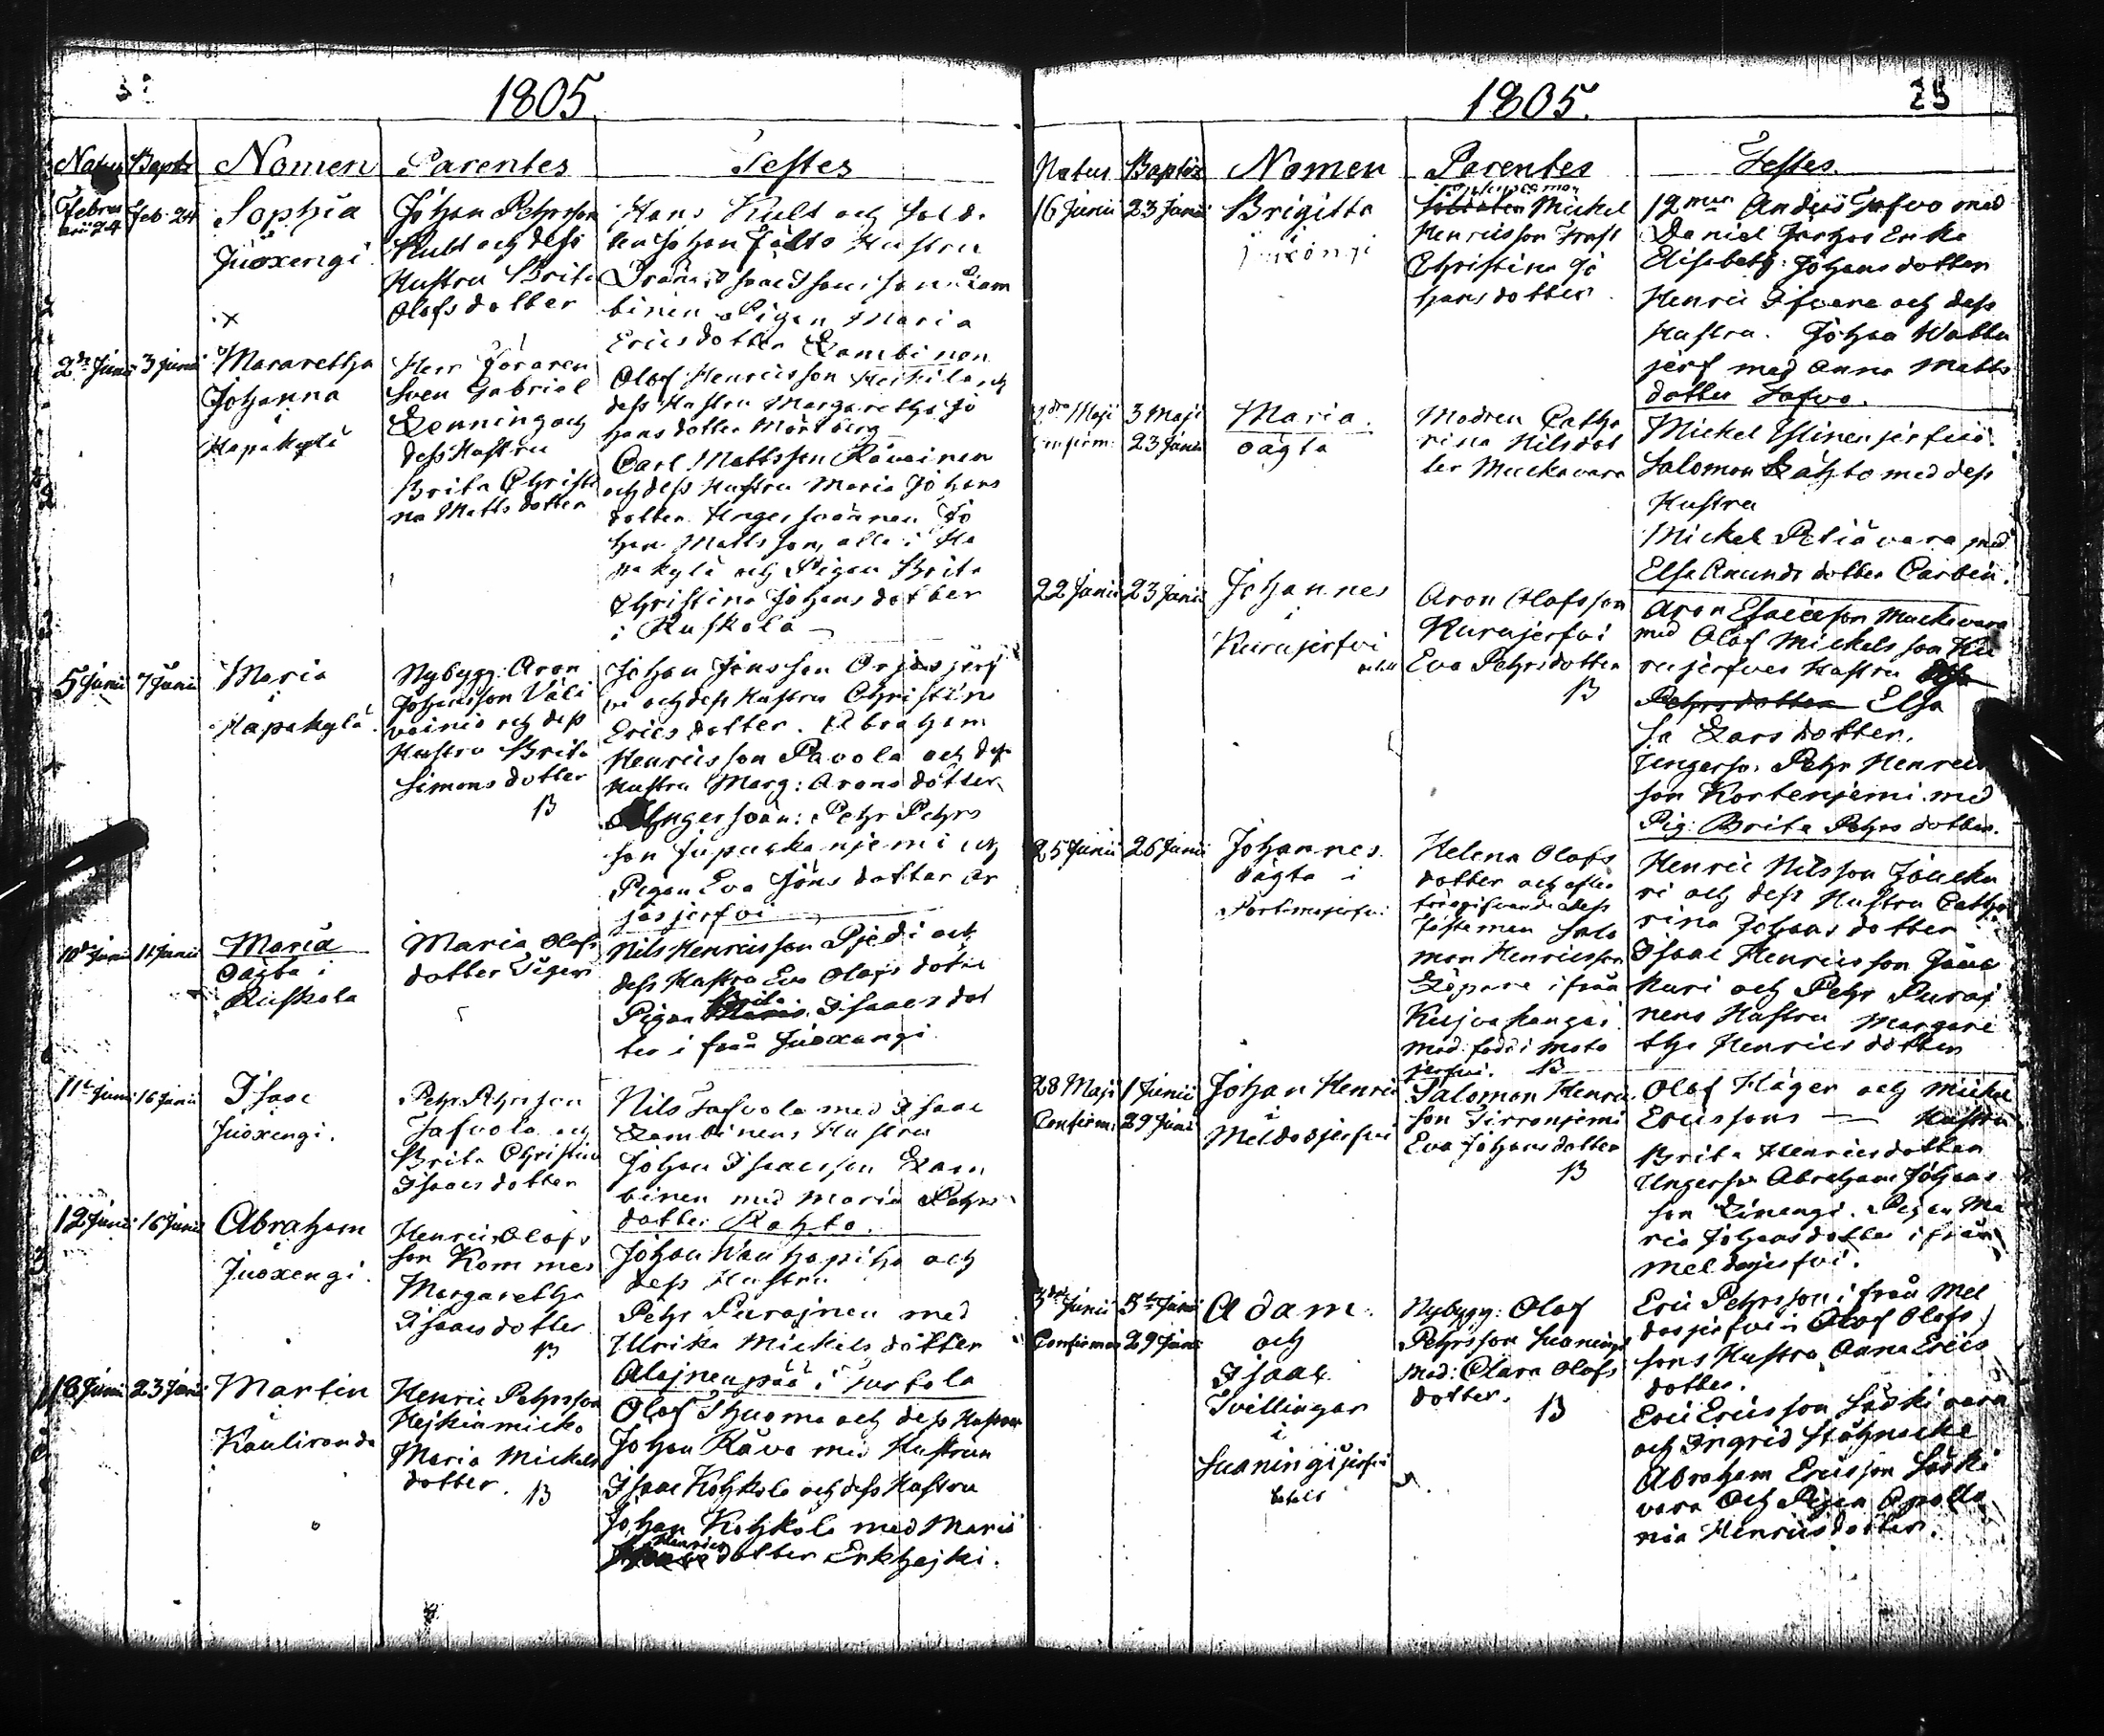 1805.
Natus Baptiz Nomen Parentes Testes
Februarii 24 Feb. 24 Sophia
i
Juoxengi
Johan Pehrsson
Kult och dess
Hustru Brita
Olofs dotter
Hans Kult och Solda
ten Johan Fälts Hustru
binen Pigan Maria
Erics dotter Lambinen
2dn Junii 3 Junii Mararetha
Johanna
i
Hapakylä
Herr
Sven Gabriel
Lönning och
dess Hustru
Brita Christi
na Matts dotter
Olof Henricsson Heikila och
dess Hustru Margaretha Jo
hans dotter Mörtberg
Carl Mattsson Räueinen
och dess Hustru Maria Johans
dotter. Ungersvännen Jo
han Mattsson, alla i Ha
pakylä och Pigan Brita
Christina Johans dotter
i Ruskola
5 Junii 7 Junii Maria
i
Hapakylä
Nybygg: Aron
Johansson Väli
vainio och dess
Hustru Brita
Simons dotter
B
Johan Jönsson Orjasjerf
vi och dess Hustru Christina
Erics dotter. Abraham
Henricsson Pavola och dess
Hustru Marg: Arons dotter
Ungersvän: Pehr Pehrs
son Jupuckanjemi och
Pigan Eva Jöns dotter Or
jasjerfvi
10de Junii 11 Junii Maria
oägta i
Ruskola
Maria Olofs
dotter Pigan
Nils Henricsson Pjedi och
dess Hustru Eva Olofs dotter
Pigan Brita Isaacs dot
ter i från Juoxangi
11te Junii 16 Junii Isaac
i
Juoxengi.
Pehr Pehrsson
Tafvola och
Brita Christina
Isaacs dotter
Nils Tafvola med Isaac
Lambinens Hustru
Johan Isaacsson Lam
binen med Maria Pehrs
dotter Rahto.
12 Junii 16 Junii Abraham
i
Juoxengi.
Henric Olofs
son Kommes
Margaretha
Isaacs dotter
B
Johan Wanhapiha och
dess Hustru
Pehr Purajnen med
Ulrika Mickels dotter
Alajnenpää i Turtola
16 Junii 23 Junii Martin
i
Kauliranda
Henric Pehrsson
Hejkinmicko
Maria Mickels
dotter. B
Olof Thuoma och dess Hustru
Johan Räva med Hustrun
Isaac Kohkola och dess Hustru
Johan Kohkola med Maria
Henrics dotter Erkhejki.
1805. 25
Natus Baptiz Nomen Parentes Testes.
16 Junii 23 Junii Brigitta
i
Mickel
Henricsson Frast
Christina Jo
hans dotter.
12man Anders Tafvo med
Daniel Enka
Elisabeth Johans dotter
Henric Ifvara och dess
Hustru. Johan Wattu
jerf med Anna Matts
dotter Tafvo.
2dra Maji 3 Maji Maria.
Confirm. 23 Junii oägta
Modren Catha
rina Nilsdot
ter Muckavara
Mickel Ylinenjerfvi
Salomon Lahto med dess
Hustru
Mickel Petiävara med
Elsa Amunds dotter Carbin.
22 Junii 23 Junii Johannes
i
Kurujerfvi
Aron Olofsson
Kurujerfvi
Eva Pehrsdotter
B
Aron Esaiesson Muckavara
med Olof Mickelsson Ku
rujerfves Hustru
Pehrsdotter Elsa
sa Lars dotter.
Jungerso. Pehr Henrics
son Kortenjemi med
Pig: Brita Pehrs dotter.
25 Junii 26 Junii Johannes
oägta i
Portimojerfvi
Helena Olofs
dotter och efter
trägifvande dess
Fästeman Salo
mon Henricsson
Löpare i från
Kuivakangas.
Mod. född i Moto
jerfvi. B
Henric Nilsson Jäucku
ri och dess Hustru Catha
rina Johans dotter
Isaac Henricsson Jäuc
kuri och Pehr Puraj
nens Hustru Margare
tha Henrics dotter
28 Maji 1 Junii Johan Henric
Confirm. 29 Junii i
Meldosjerfvi
Salomon Henric
son Tirronjemi
Eva Johans dotter
B
Olof Häger och Mickel
Ericssons — Hustru
Brita Henricsdotter
Ungersv. Abraham Johans
son Linengi. Pigan Ma
ria Johans dotter i från
Meldosjerfvi.
3die Junii 5te Junii Adam.
Confirmat 29 Junii och
Isaac
Tvillingar
i
Suaningijerfvi
betalt
Nybygg: Olof
Pehrsson Suaningi
Mod: Clara Olofs
dotter. B
Eric Pehrsson i från Mel
dosjerfvi Olof Olofs
sons Hustru Anna Erics
dotter.
Eric Ericsson Säskivara
och Ingrid Stöhnacke
Abraham Ericsson Säski
vara och Pigan Apollo
nia Henrics dotter.